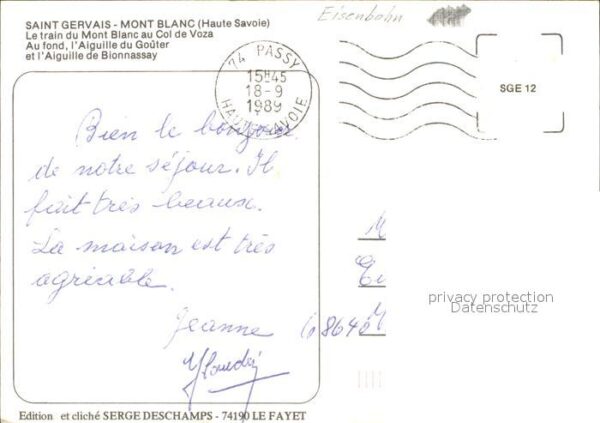 Eisenbahn
SAINT GERVAIS - MONT BLANC (Haute Savoie)
Le train du Mont Blanc au Col de Voza
Au fond, l'Aiguille du Goûter
et l'Aiguille de Bionnassay
74 PASSY
15H45
18-9
1989
HAUTE-SAVOIE
SGE 12
Bien le bonjour
de notre séjour. Il
fait très beaux.
La maison est très
agréable.
Jeanne
68640
privacy protection
Datenschutz
Edition et cliché SERGE DESCHAMPS - 74190 LE FAYET